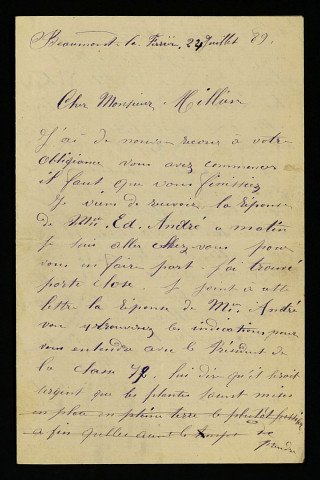 Beaumont-la-Ferrière, 22 Juillet 89.
Cher Monsieur Millien
J'ai de nouveau recours à votre
obligeance vous avez commencer
il faut que vous finissiez
Je viens de recevoir la réponse
de Mr. Ed. André ce matin
je suis aller chez-vous pour
vous en faire part. j'ai trouvé
porte close. Je joint à cette
lettre la réponse de Mr. André
vous y trouverez les indications pour
vous entendre avec le Président de
la classe 79. lui dire qu'il serait
urgent que les plantes soient mises
en place en pleine terre le plutôt possible
a fin qu'elles aient le temps de
prendre